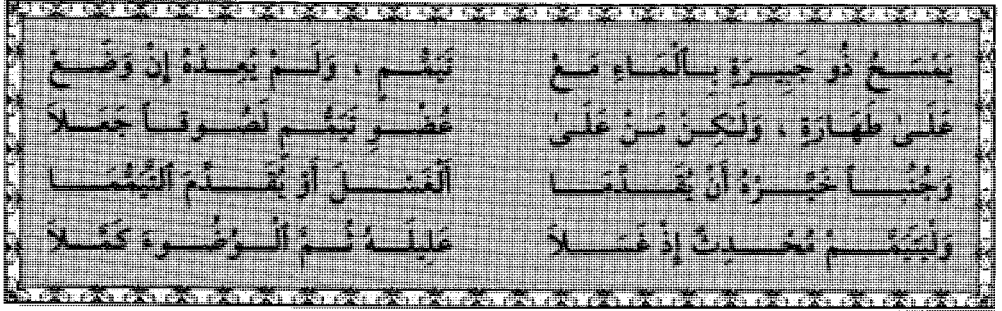 يَمْسَحُ ذُو جَبِيرَةٍ بِٱلْمَاءِ مَعْ تَيَمُّمٍ ، وَلَمْ يُعِدْهُ إِنْ وَضَعْ
عَلَىٰ طَهَارَةٍ ، وَلَـٰكِنْ مَنْ عَلَىٰ عُضْوِ تَيَمُّمٍ لَصُوقاً جَعَلاَ
وَجُنُباً خَيِّرْهُ أَنْ يُقَدِّمَا ٱلْغَسْلَ أَوْ يُقَدِّمَ ٱلتَّيَمُّمَا
وَلْيَتَيَمَّمْ مُحْدِثٌ إِذْ غَسَلاَ عَلِيلَهُ ثُمَّ ٱلْوُضُوءَ كَمَّلاَ